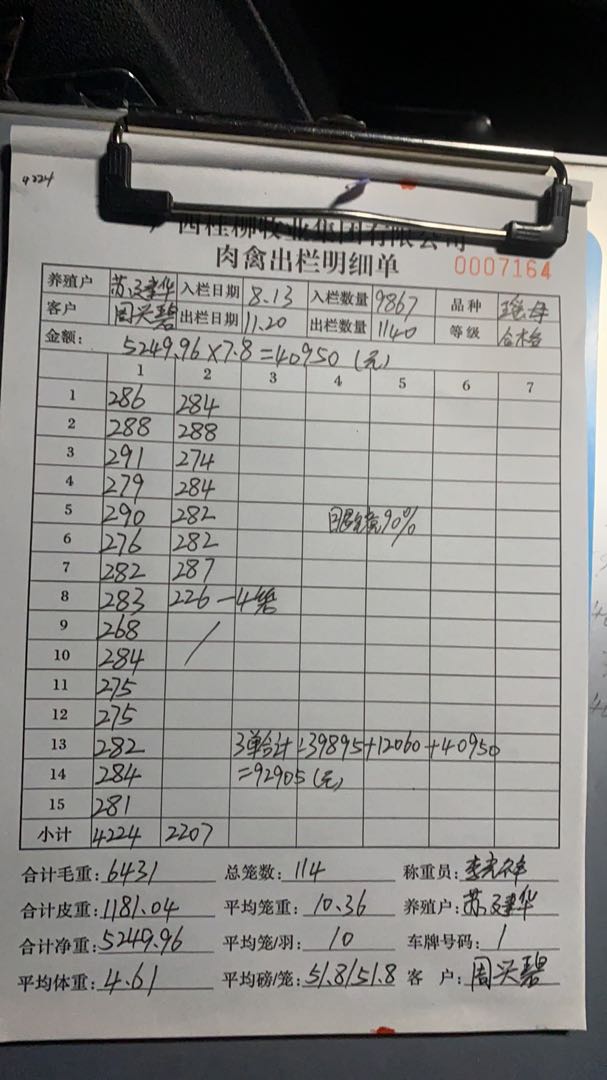 4224
西桂柳牧业集团有限公司
肉禽出栏明细单 0007164
养殖户 苏建华 入栏日期 8.13 入栏数量 9867 品种
客户 周兴碧 出栏日期 11.20 出栏数量 1140 等级 合格
金额: 5249.96×7.8=40950(元)
1 2 3 4 5 6 7
1 286 284
2 288 288
3 291 274
4 279 284
5 290 282 90%
6 276 282
7 282 287
8 283 226 - 4笼
9 268 /
10 284
11 275
12 275
13 282 3单合计=39895+12060+40950
14 284 =92905(元)
15 281
小计 4224 2207
合计毛重: 6431 总笼数: 114 称重员:
合计皮重: 1181.04 平均笼重: 10.36 养殖户: 苏建华
合计净重: 5249.96 平均笼/羽: 10 车牌号码: 1
平均体重: 4.61 平均磅/笼: 51.8/51.8 客户: 周兴碧